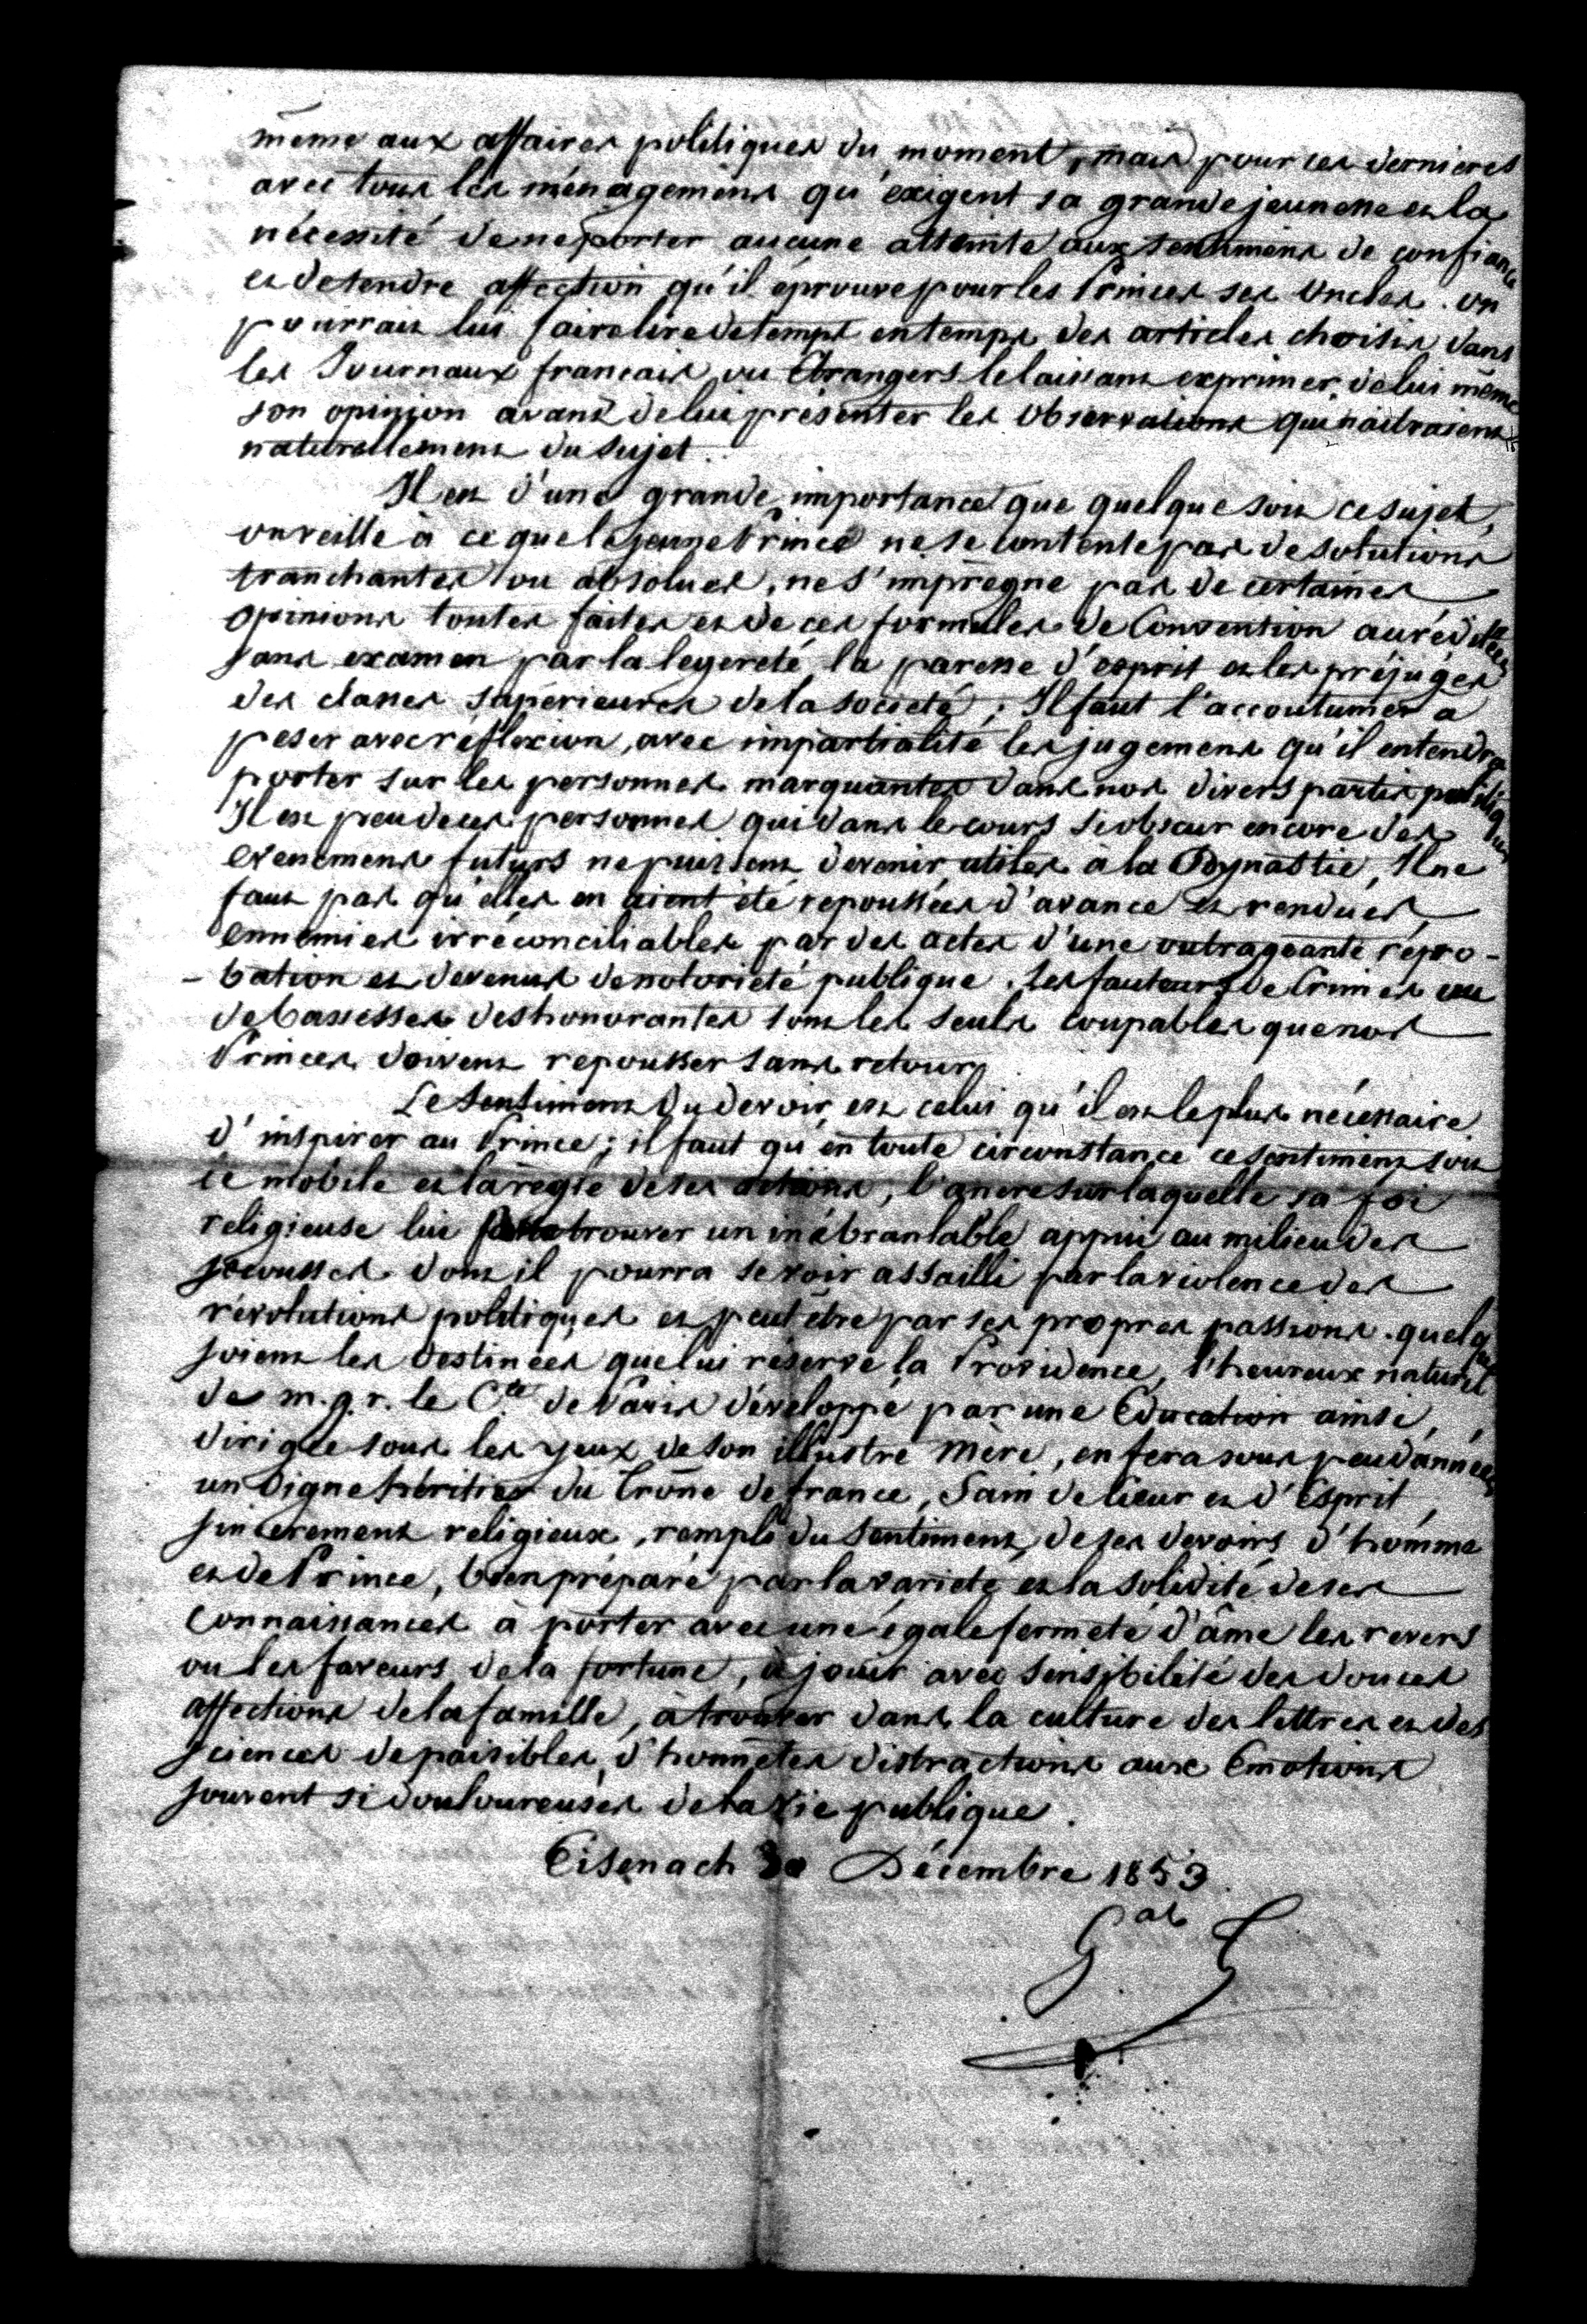 même aux affaires politiques du moment, mais pour ces dernieres
avec tous les ménagemens qu'exigent sa grande jeunesse et la
nécessité de ne porter aucune atteinte aux sentimens de confiance
et de tendre affection qu'il éprouve pour les Princes ses Oncles. on
pourrait lui faire lire de temps en temps des articles choisis dans
les Journaux francais ou Etrangers le laissant exprimer de lui même
son opinion avant de lui présenter les Observations qui naitraient
naturellement du sujet.
Il est d'une grande importance que quelque soit ce sujet,
on veille à ce que le jeune Prince ne se contente pas de solutions
tranchantes ou absolues, ne s'imprègne pas de certaines
opinions toutes faites et de ces formules de Convention accréditées
sans examen par la legereté, la paresse d'esprit et les préjugés
des classes supérieures de la société; Il faut l'accoutumer a
peser avec réflexion, avec impartialité les jugemens qu'il entendra
porter sur les personnes marquantes dans nos divers partis politiques
Il est peu de ces personnes qui dans le cours si obscur encore des
evenemens futurs ne puissent devenir utiles à la Dynastie, Il ne
faut pas qu'elles en aient été repoussées d'avance et rendues
ennemies irréconciliables par des actes d'une outrageante répro-
-bation et devenus de notorieté publique. les fauteurs de Crimes ou
de bassesses deshonorantes sont les seuls coupables que nos
Princes doivent repousser sans retour.
Le Sentiment du devoir est celui qu'il est le plus nécessaire
d'inspirer au Prince; il faut qu'en toute circonstance ce sentiment soit
le mobile et la règle de ses actions, l'ancre sur laquelle sa foi
religieuse lui fasse trouver un inébranlable appui au milieu des
secousses dont il pourra se voir assailli par la violence des
révolutions politiques et peut être par ses propres passions. quelques
soient les destinées que lui réserve la Providence, l'heureux naturel
de m.g.r. le Cte de Paris développé par une Education ainsi
dirigée sous les yeux de son illustre Mère, en fera sous peu d'années
un digne héritier du Trône de france, Sain de Cœur et d'Esprit,
sincerement religieux, rempli du Sentiment de ses devoirs d'homme
et de Prince, bien préparé par la varieté et la solidité de ses
connaissances à porter avec une égale fermeté d'âme les revers
ou les faveurs de la fortune, à jouir avec sensibilité des douces
affections de la famille, à trouver dans la culture des lettres et des
sciences de paisibles, d'honnêtes distractions aux Emotions
souvent si douloureuses de la vie publique.
Eisenach Décembre 1853.